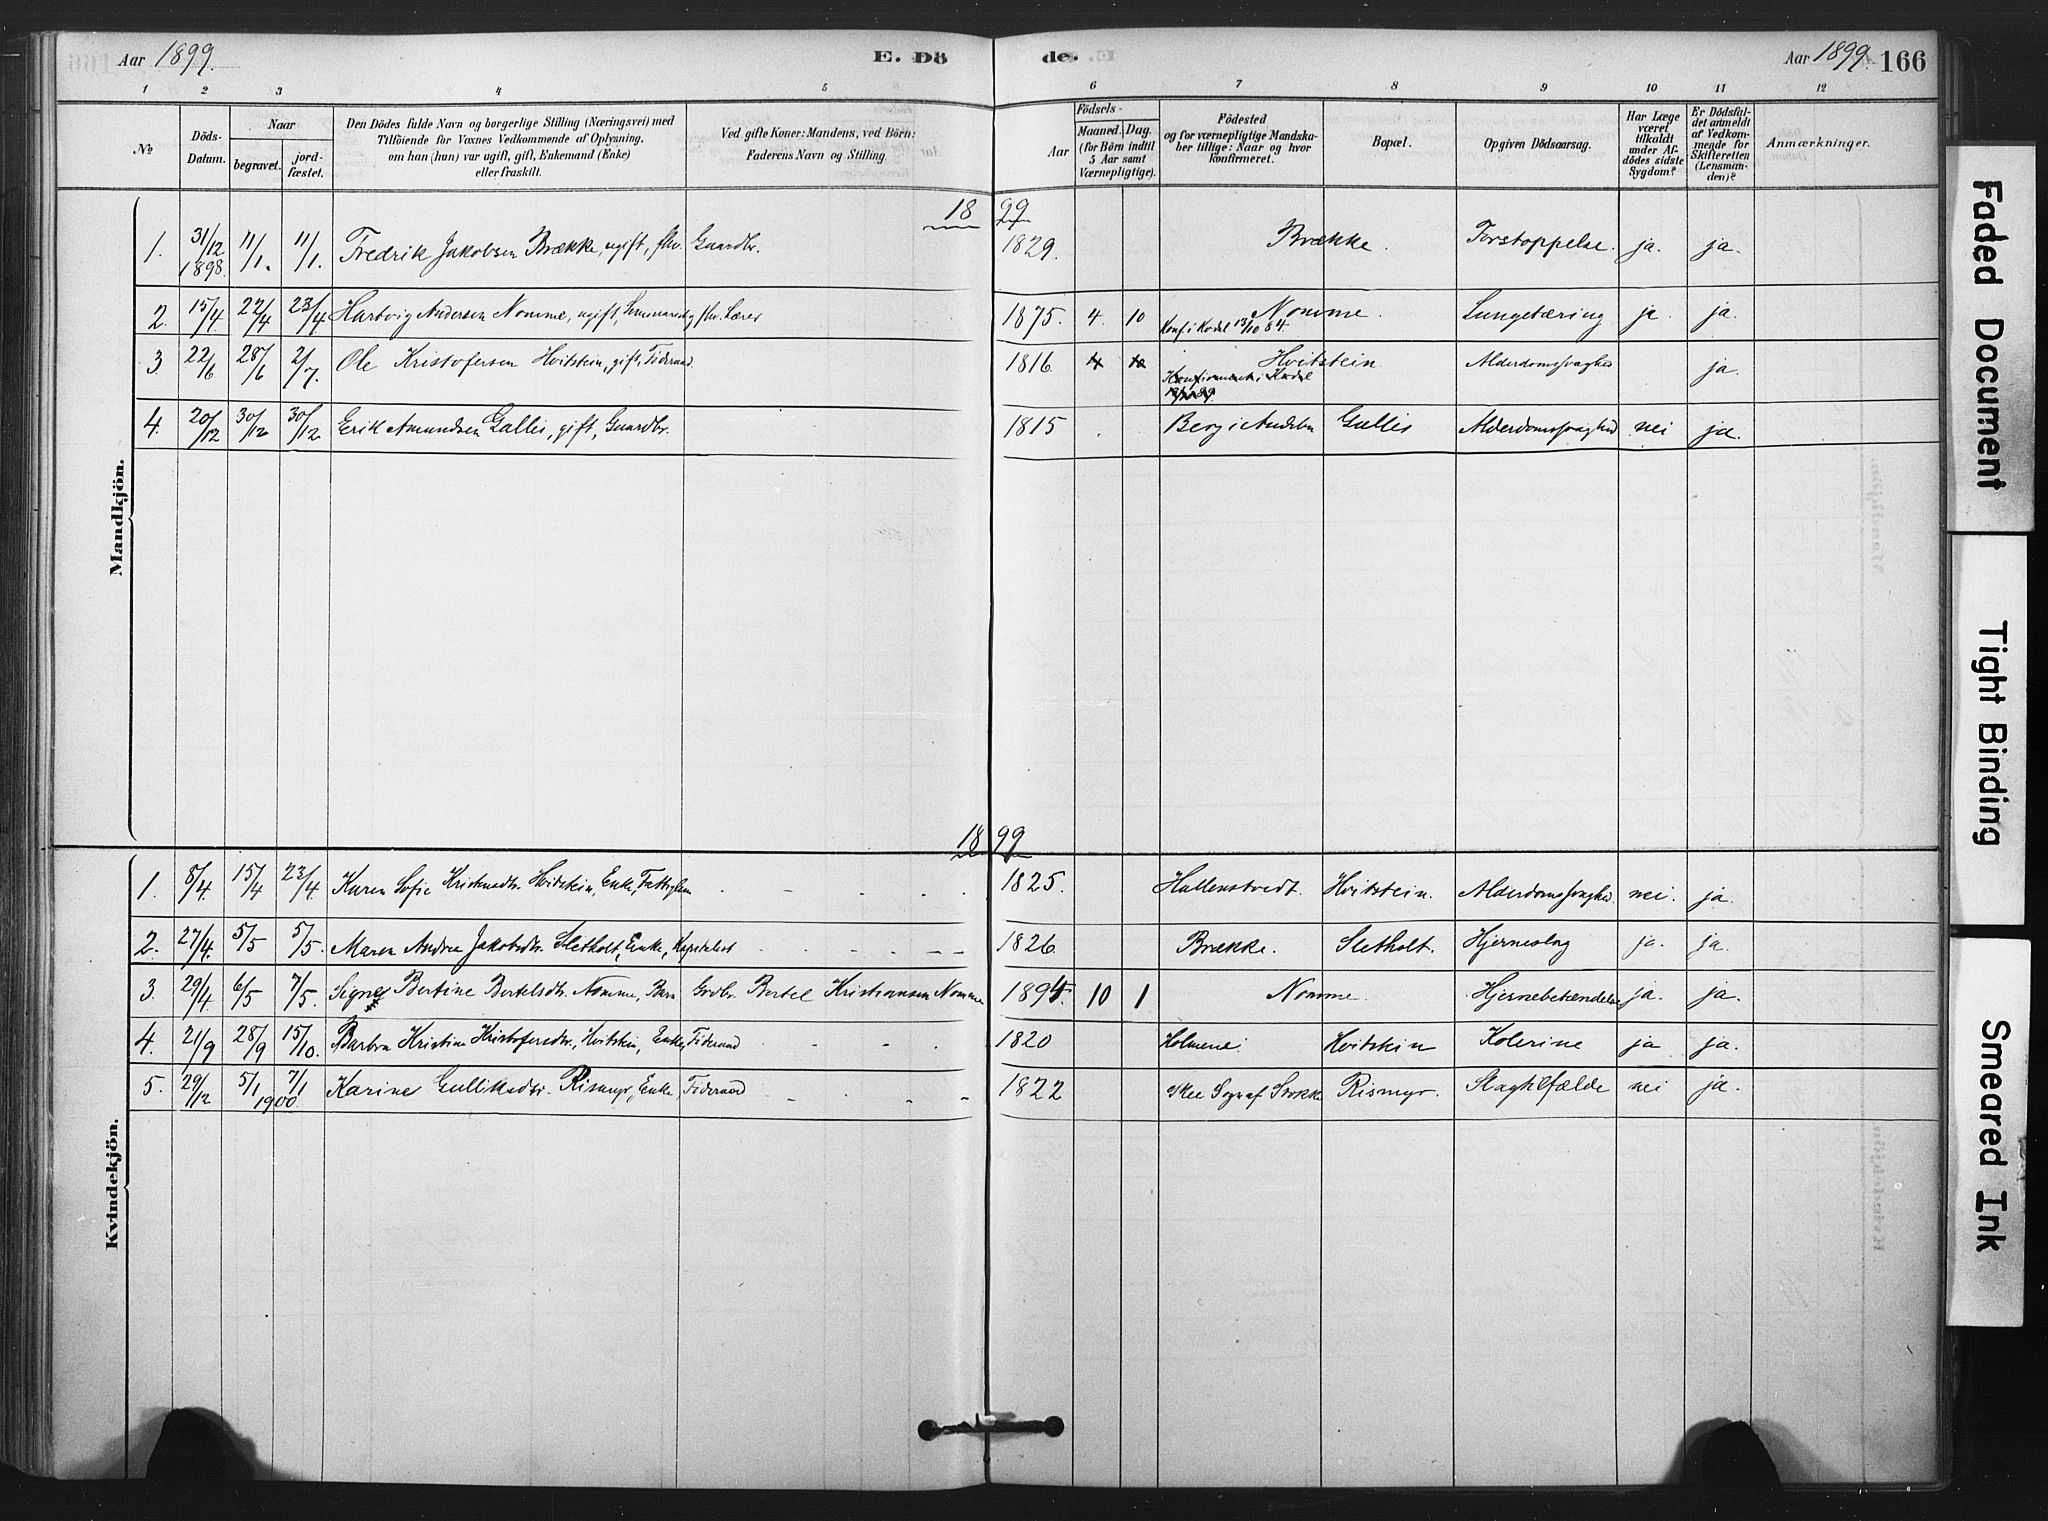 Aar 1899.
E. Dö
de.
Aar 1899.
166
1 2 3 4 5 6 7 8 9 10 11 12
No
Döds-Datum.
Naar
begravet.
jord-fæstet.
Den Dödes fulde Navn og borgerlige Stilling (Næringsvei) med
Tilföiende for Voxnes Vedkommende af Oplysning,
om han (hun) var ugift, gift, Enkemand (Enke)
eller fraskilt.
Ved gifte Koner: Mandens, ved Börn:
Faderens Navn og Stilling
Födsels-
Aar
Maaned. Dag.
(for Börn indtil
5 Aar samt
Værnepligtige).
Födested
og for værnepligtige Mandska-
ber tillige: Naar og hvor
konfirmeret.
Bopæl.
Opgiven Dödsaarsag.
Har Læge
været
tilkaldt
under Af-
dödes sidste
Sygdom?
Er Dödsfal-
det anmeldt
af Vedkom-
mende for
Skifteretten
(Lensman-
den)?
Anmærkninger.
Mandkjön.
1899
1. 31/12 1898. 11/1. 11/1. Fredrik Jakobsen Brække, ugift, fhv. Gaardbr. 1829. Brække. Forstoppelse. ja. ja.
2. 15/4 22/4 23/4 Hartvig Andersen Nomme, ugift, Seminarist og fhv. Lærer 1875. 4. 10 Nomme. Lungetæring ja. ja.
Konf. i Kodal 13/10 84
3 22/6 28/6 2/7. Ole Kristofersen Hvitstein, gift, Föderaad 1816 4 10 Hvitstein. Alderdomssvaghed ja.
Konfirmeret i Kodal
4. 20/12 30/12 30/12. Erik Amundsen Gallis, gift, Gaardbr. 1815 Berg i Andebu Gallis Alderdomssvaghed nei ja.
Kvindekjön.
1899
1. 8/4. 15/4 23/4. Karen Sofie Kristensdtr. Hvitstein, Enke, Fattiglem 1825. Hallenstvedt. Hvitstein. Alderdomssvaghed. nei. ja.
2. 27/4. 5/5 5/5. Maren Andrea Jakobsdtr. Sletholt, Enke, Kapitalist 1826 Brække. Sletholt. Hjerneslag ja. ja.
3. 29/4. 6/5 7/5. Signe Bertine Bertelsdtr. Nomme, Barn Grdbr. Bertel Kristiansen Nomme 1895 10 1 Nomme. Hjernebetændelse ja. ja.
4. 21/9 28/9 15/10. Barbra Kristine Kristofersdtr., Hvitstein, Enke, Föderaad 1820 Holmene. Hvitstein Kolerine ja ja.
5. 29/12 5/1 7/1 1900. Karine Gulliksdtr. Rismyr, Enke, Föderaad 1822 Skee Sogn af Stokke Rismyr. Slagtilfælde nei ja.
Faded Document
Tight Binding
Smeared Ink